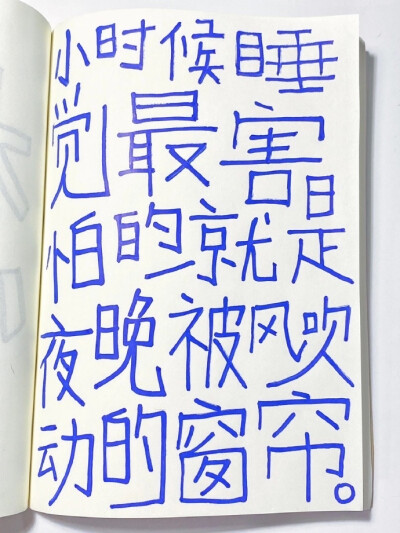 小时候睡
觉最害
怕的就是
夜晚被风吹
动的窗帘。